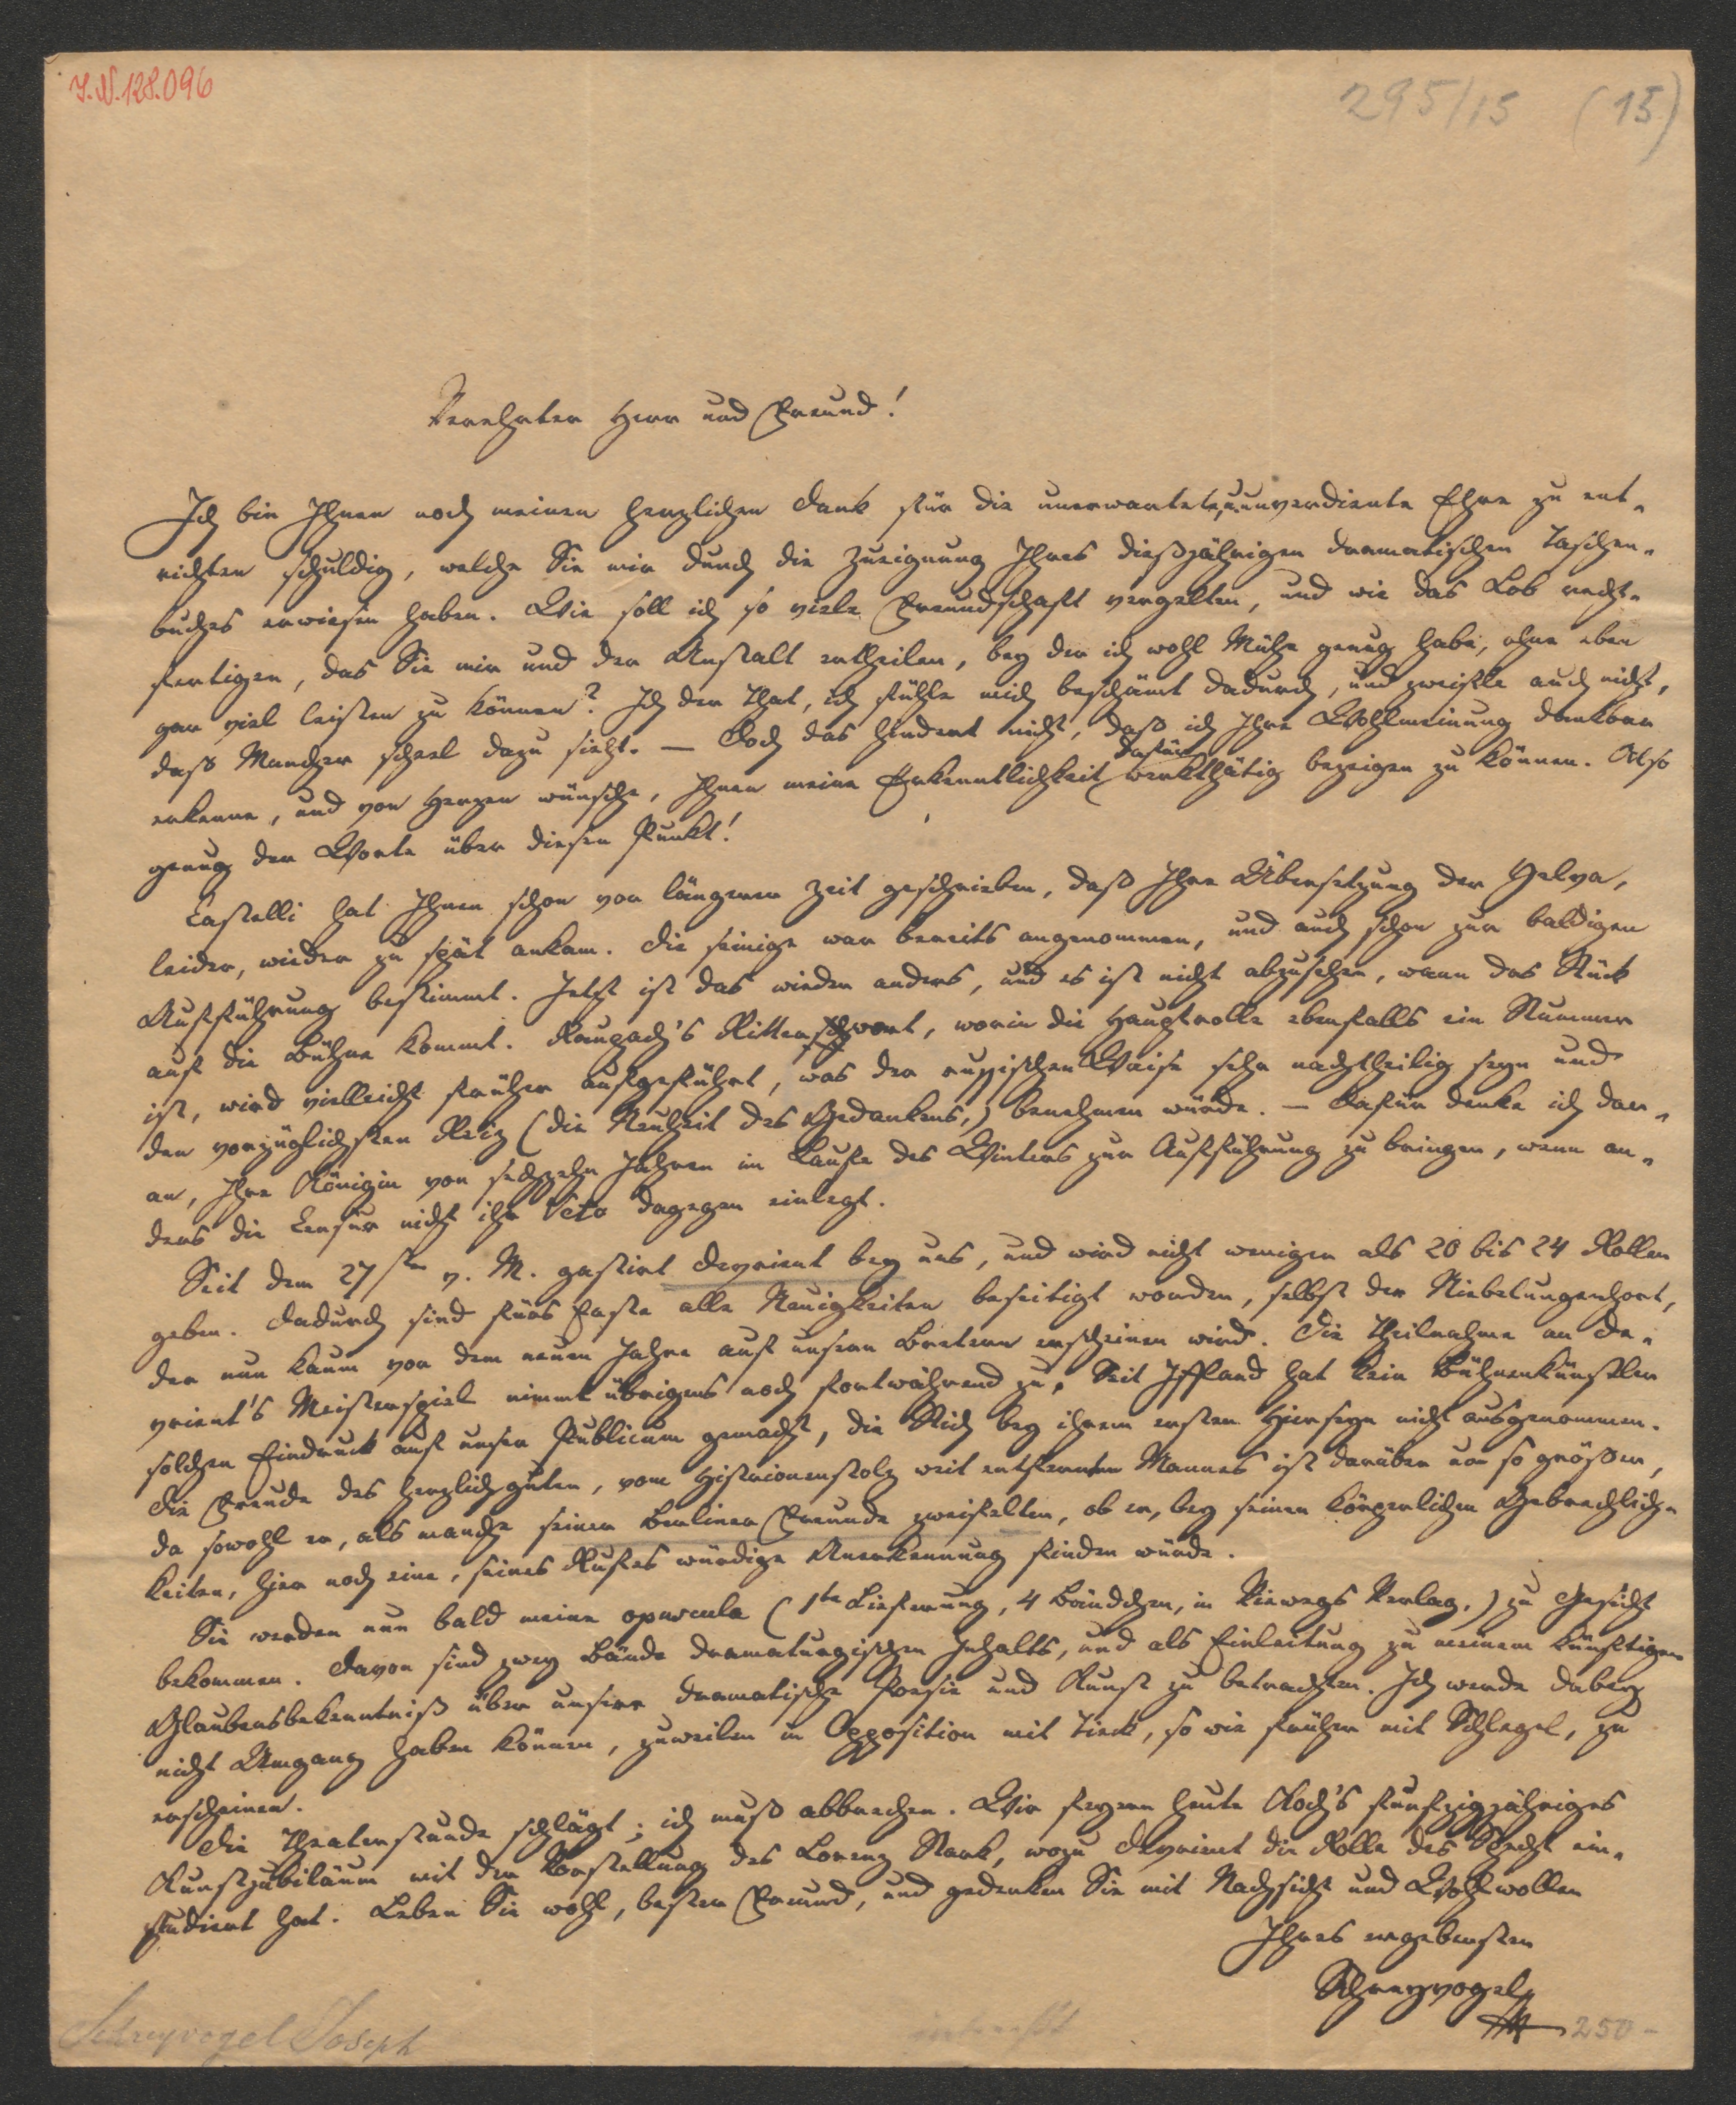 I.N. 128.096
295/15 (15)
Verehrter Herr und Freund!
Ich bin Ihnen noch meinen herzlichen Dank für die unerwartete, u. unverdiente Ehre zu ent-
richten schuldig, welche Sie mir durch die Zueignung Ihres dießjährigen dramatischen Taschen-
buches erwiesen haben. Wie soll ich so viele Freundschaft vergelten, und wie das Lob recht-
fertigen, das Sie mir und der Anstalt ertheilen, bey der ich wohl Mühe genug habe, ohne eben
gar viel leisten zu können? Ich der That, ich fühle mich beschämt dadurch, und zweifle auch nicht,
daß Mancher scheel dazu sieht. — Doch das hindert nicht, daß ich Ihre Wohlmeinung dankbar
erkenne, und von Herzen wünsche, Ihnen meine Erkenntlichkeit dafür werkthätig bezeigen zu können. Also
genug der Worte über diesen Punkt!
Castelli hat Ihnen schon vor längerer Zeit geschrieben, daß Ihre Übersetzung der Yelva,
leider, wieder zu spät ankam. Die seinige war bereits angenommen, und auch schon zur baldigen
Aufführung bestimmt. Jetzt ist das wieder anders, und es ist nicht abzusehen, wann das Stück
auf die Bühne kommt. Raupach's Ritterwort, worin die Hauptrolle ebenfalls ein Stummer
ist, wird vielleicht früher aufgeführt, was der russischen Waise sehr nachtheilig seyn und
den vorzüglichsten Reiz (die Neuheit des Gedankens,) benehmen würde. — Dafür denke ich dar-
an, Ihre Königin von sechzehn Jahren im Laufe des Winters zur Aufführung zu bringen, wenn an-
ders die Censur nicht ihr Veto dagegen einlegt.
Seit dem 27sten v. M. gastirt Devrient bey uns, und wird nicht weniger als 20 bis 24 Rollen
geben. Dadurch sind fürs Erste alle Neuigkeiten beseitigt worden, selbst der Niebelungenhort,
der nun kaum vor dem neuen Jahre auf unsern Bretern erscheinen wird. Die Theilnahme an De-
vrient's Meisterspiel nimmt übrigens noch fortwährend zu. Seit Iffland hat kein Bühnenkünstler
solchen Eindruck auf unser Publicum gemacht, die Stich bey ihrem ersten Hierseyn nicht ausgenommen.
Die Freude des herzlich guten, vom Histrionenstolz weit entfernten Mannes ist darüber um so größer,
da sowohl er, als manche seiner Berliner Freunde zweifelten, ob er, bey seinen körperlichen Gebrechlich-
keiten, hier noch eine, seines Rufes würdige Anerkennung finden würde.
Sie werden nun bald meine opuscula (1te Lieferung, 4 Bändchen, in Viewegs Verlag,) zu Gesicht
bekommen. Davon sind zwey Bände dramaturgischen Inhalts, und als Einleitung zu meinem künftigen
Glaubensbekenntniß über unsere dramatische Poesie und Kunst zu betrachten. Ich werde dabey
nicht Umgang haben können, zuweilen in Opposition mit Tieck, so wie früher mit Schlegel, zu
erscheinen.
Die Theaterstunde schlägt; ich muß abbrechen. Wir feyern heute Koch's funfzigjähriges
Kunstjubiläum mit der Vorstellung des Lorenz Stark, wozu Devrient die Rolle des Specht ein-
studiert hat. Leben Sie wohl, bester Freund, und gedenken Sie mit Nachsicht und Wohlwollen
Ihres ergebensten
Schreyvogel
250-
Schreyvogel Joseph